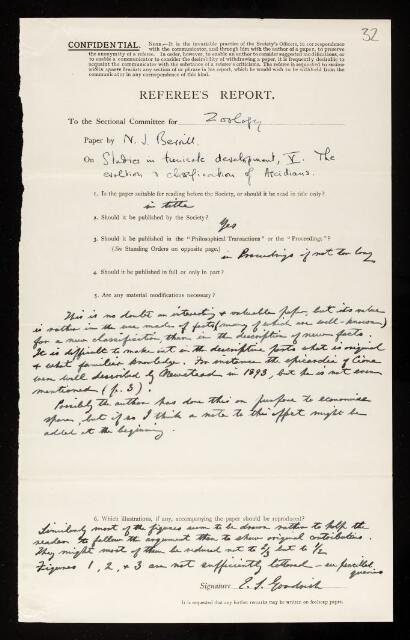 32
CONFIDENTIAL. NOTE.—It is the invariable practice of the Society's Officers, in correspondence
with the communicator, and through him with the author of a paper, to preserve
the anonymity of a referee. In order, however, to enable an author to consider suggested modifications, or
to enable a communicator to consider the desirability of withdrawing a paper, it is frequently desirable to
acquaint the communicator with the substance of a referee's criticisms. The referee is requested to
within square brackets any section of or phrase in his report, which he would wish to be withheld from the
communicator in any correspondence of this kind.
REFEREE'S REPORT.
To the Sectional Committee for Zoology
Paper by N. J. Berrill.
On Studies in tunicate development, V. The
evolution & classification of Ascidians.
1. Is the paper suitable for reading before the Society, or should it be read in title only?
in title
2. Should it be published by the Society?
Yes
3. Should it be published in the "Philosophical Transactions" or the "Proceedings"?
(See Standing Orders on opposite page.)
in Proceedings if not too long
4. Should it be published in full or only in part?
5. Are any material modifications necessary?
This is no doubt an interesting & valuable paper, but its value
is rather in the use made of facts (many of which are well-known)
for a new classification than in the description of new facts.
It is difficult to make out in the descriptive parts what is original
& what familiar knowledge. For instance the epicardia of Ciona
were well described by Newstead in 1893, but he is not even
mentioned (p. 3).
Possibly the author has done this on purpose to economise
space, but if so I think a note to this effect might be
added at the beginning.
6. Which illustrations, if any, accompanying the paper should be reproduced?
Similarly most of the figures seem to be drawn rather to help the
reader to follow the argument than to show original contributions.
They might most of them be reduced not to 2/3 but to 1/2
Figures 1, 2, & 3 are not sufficiently lettered - see pencilled
queries
Signature E. S. Goodrich
It is requested that any further remarks may be written on foolscap paper.